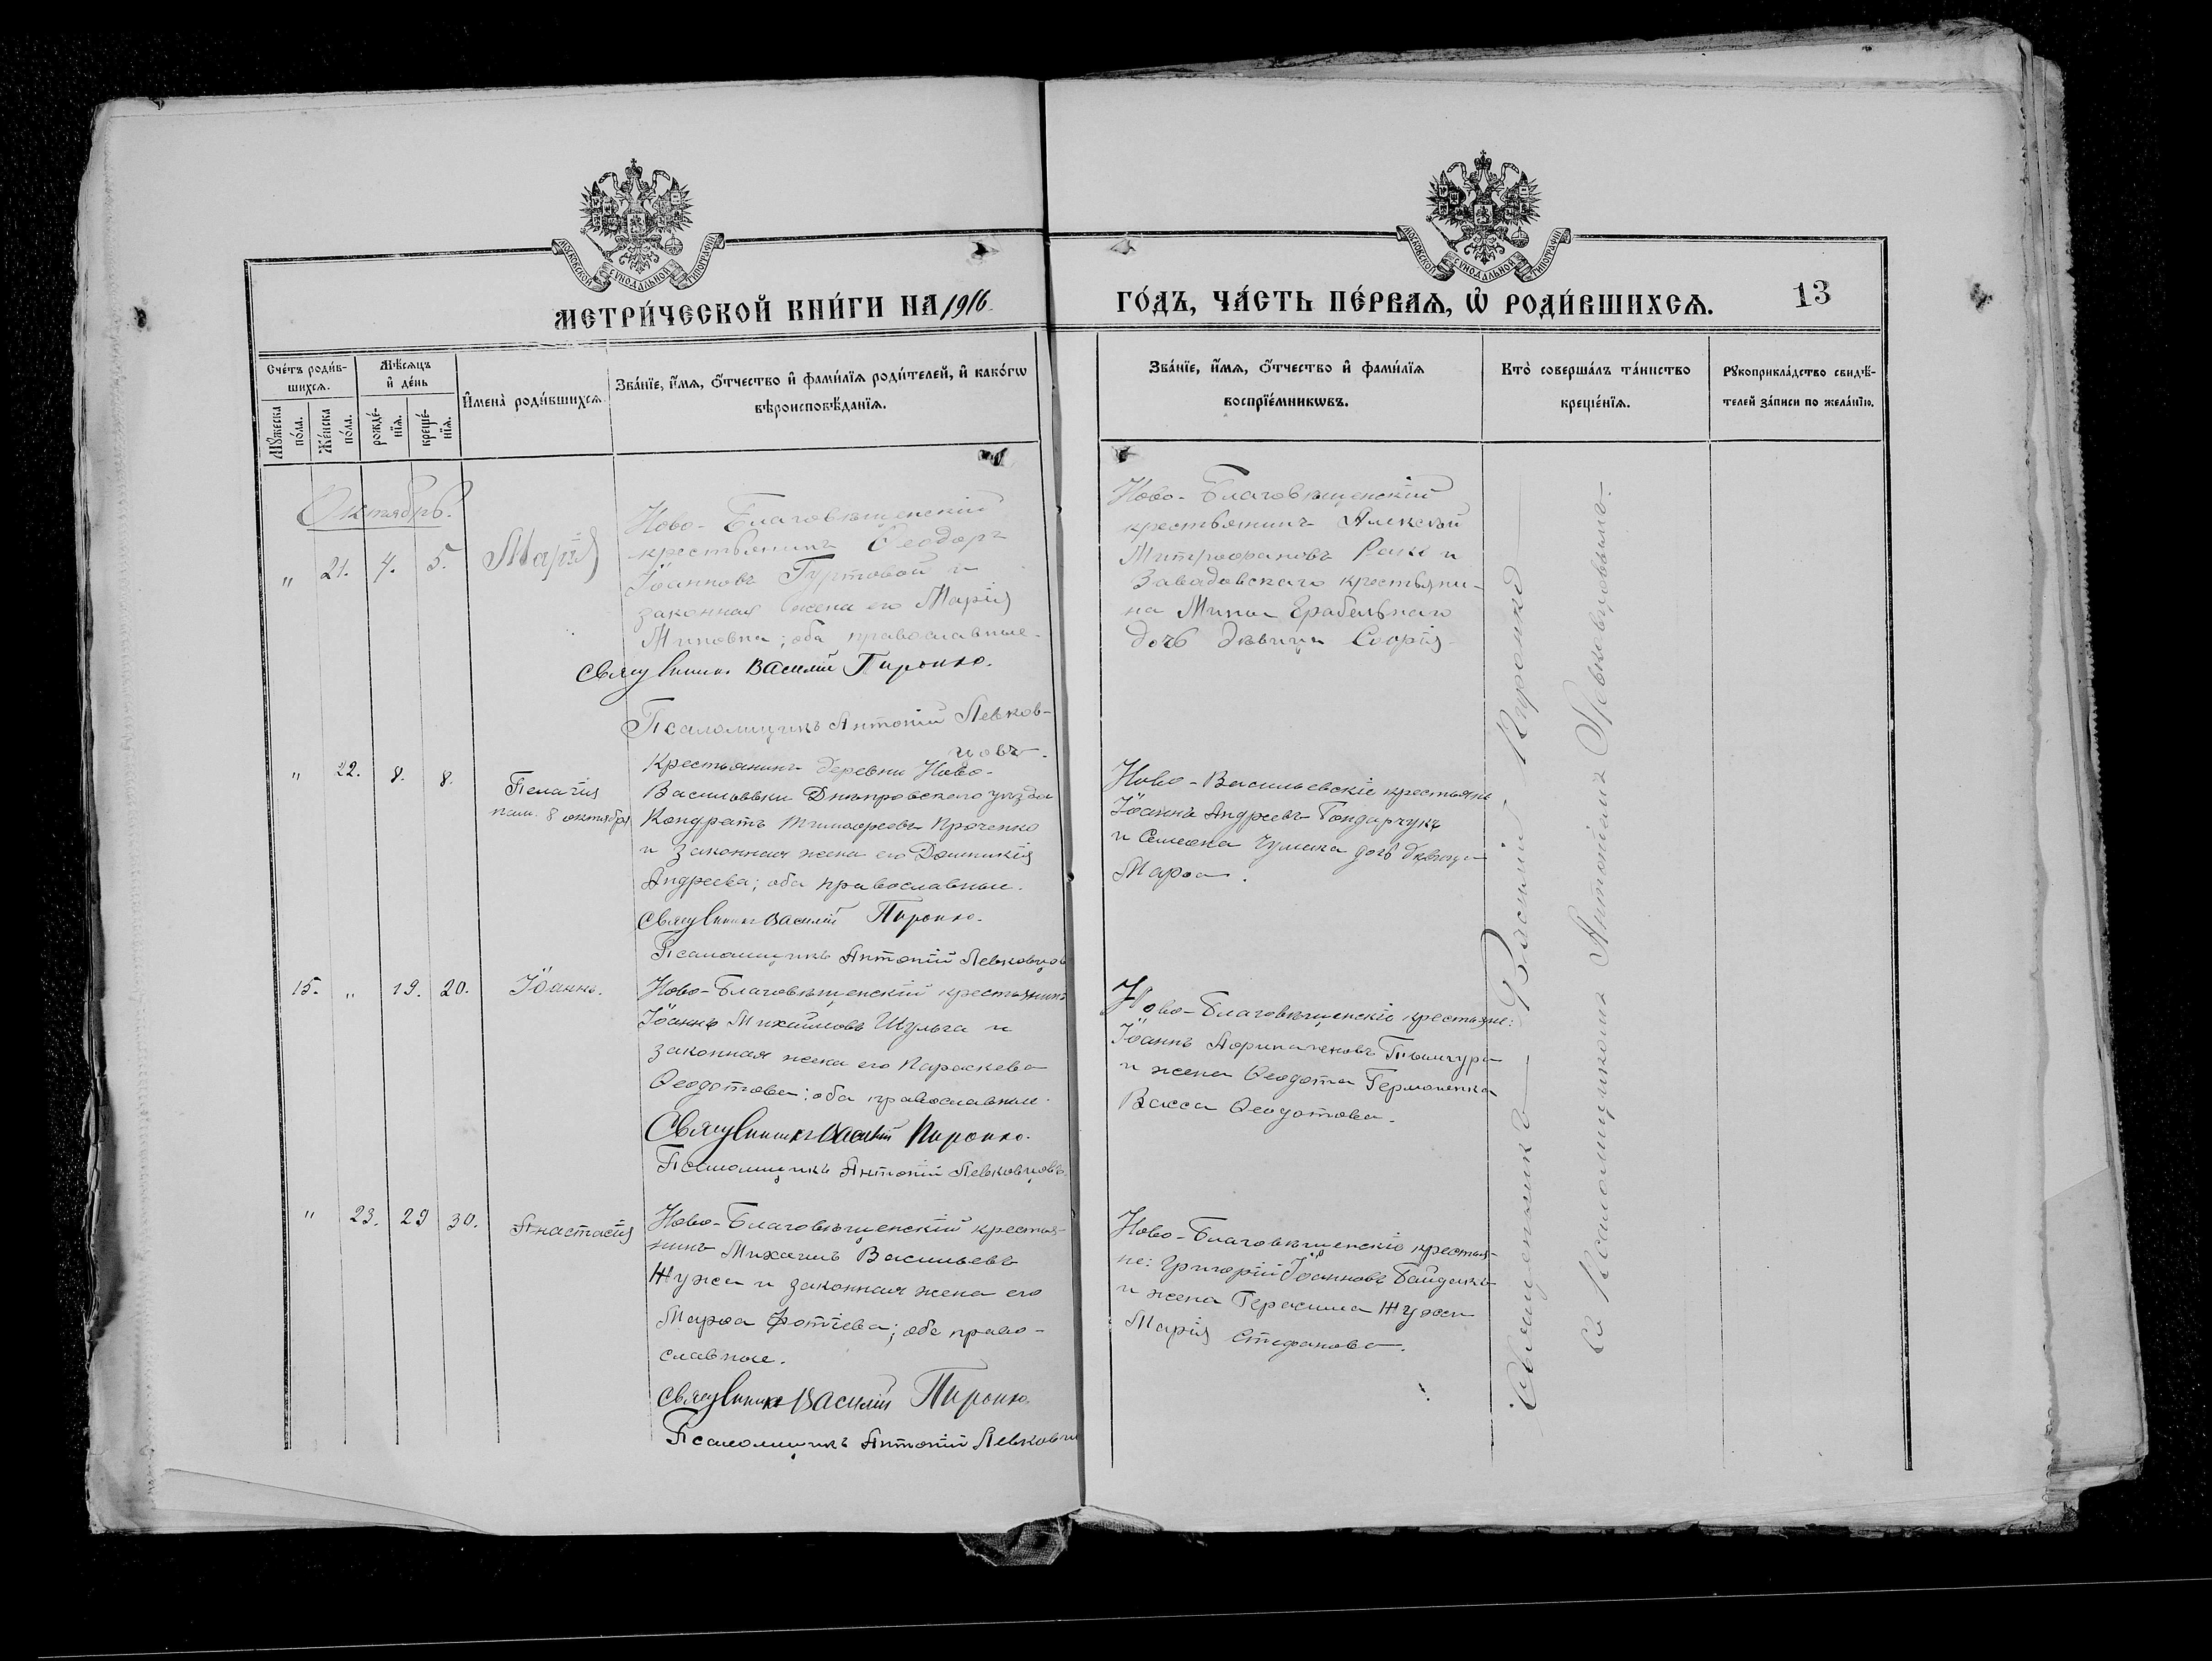 МОСКОВСКОЙ СѴНОДАЛЬНОЙ ТИПОГРАФІИ
МОСКОВСКОЙ СѴНОДАЛЬНОЙ ТИПОГРАФІИ
МЕТРИ́ЧЕСКОЙ КНИ́ГИ НА 1916
ГО́ДЪ, ЧА́СТЬ ПЕ́РВАѦ, Ѡ҆ РОДИ́ВШИХСѦ.
13
Сче́тъ роди́в-
шихсѧ.
Мѣ́сѧцъ
и҆ де́нь
Мꙋ́жеска
по́ла.
Же́нска
по́ла.
рожде́-
нїѧ.
креще́-
нїѧ.
И҆мена̀ роди́вшихсѧ.
Зва́нїе, и҆́мѧ, ѻ҆́тчество и҆ фами́лїѧ роди́телей, и҆ како́гѡ
вѣроисповѣ́данїѧ.
Зва́нїе, и҆́мѧ, ѻ҆́тчество и҆ фами́лїѧ
воспрїе́мникѡвъ.
Кто̀ соверша́лъ та́инство
креще́нїѧ.
Рꙋкоприкла́дство свидѣ́-
телей за́писи по жела́нїю.
Октябрь.
" 21. 4. 5. Марія
Ново-Благовѣщенскій
крестьянинъ Ѳеодоръ
Іоанновъ Гуртовой и
законная жена его Марія
Миновна; оба православные.
Священникъ Василій Пиронко.
Псаломщикъ Антоній Левков-
цовъ.
Ново-Благовѣщенскій
крестьянинъ Алексѣй
Митрофановъ Рака и
Завадовскаго крестьяни-
на Мины Грабельнаго
дочь дѣвица Софія
" 22. 8. 8. Пелагія
пам. 8 октября
Крестьянинъ деревни Ново-
Васильевки Днѣпровскаго уѣзда
Кондратъ Тимофеевъ Проченко
и законная жена его Домникія
Андреева; оба православные.
Священникъ Василій Пиронко.
Псаломщикъ Антоній Левковцов
Ново-Васильевскіе крестьяне
Іоаннъ Андреевъ Гондарчукъ
и Семеона Чумака дочь дѣвица
Марѳа.
15. " 19. 20. Іоаннъ.
Ново-Благовѣщенскій крестьянинъ
Іоаннъ Михайловъ Шульга и
законная жена его Параскева
Ѳеодотова; оба православные.
Священникъ Василій Пиронко.
Псаломщикъ Антоній Левковцовъ
Ново-Благовѣщенскіе крестьяне:
Іоаннъ
и жена Ѳеодота Германенка
Васса Ѳеодотова.
" 23. 29 30. Анастасія
Ново-Благовѣщенскій крестья-
нинъ Михаилъ Васильевъ
Жужа и законная жена его
Марѳа Фотіева; оба право-
славные.
Священникъ Василій Пиронко.
Псаломщикъ Антоній Левковц
Ново-Благовѣщенскіе крестья-
не: Григорій Іоанновъ Байдакъ
и жена Герасима Жужи
Марія Стефанова.
Священникъ Василій Пиронко
съ Псаломщикомъ Антоніемъ Левковцовымъ.